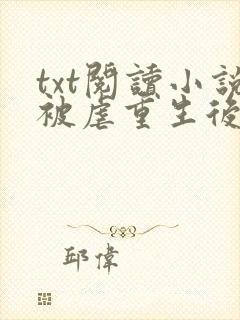 txt閱讀小說
被虐重生後
邱偉